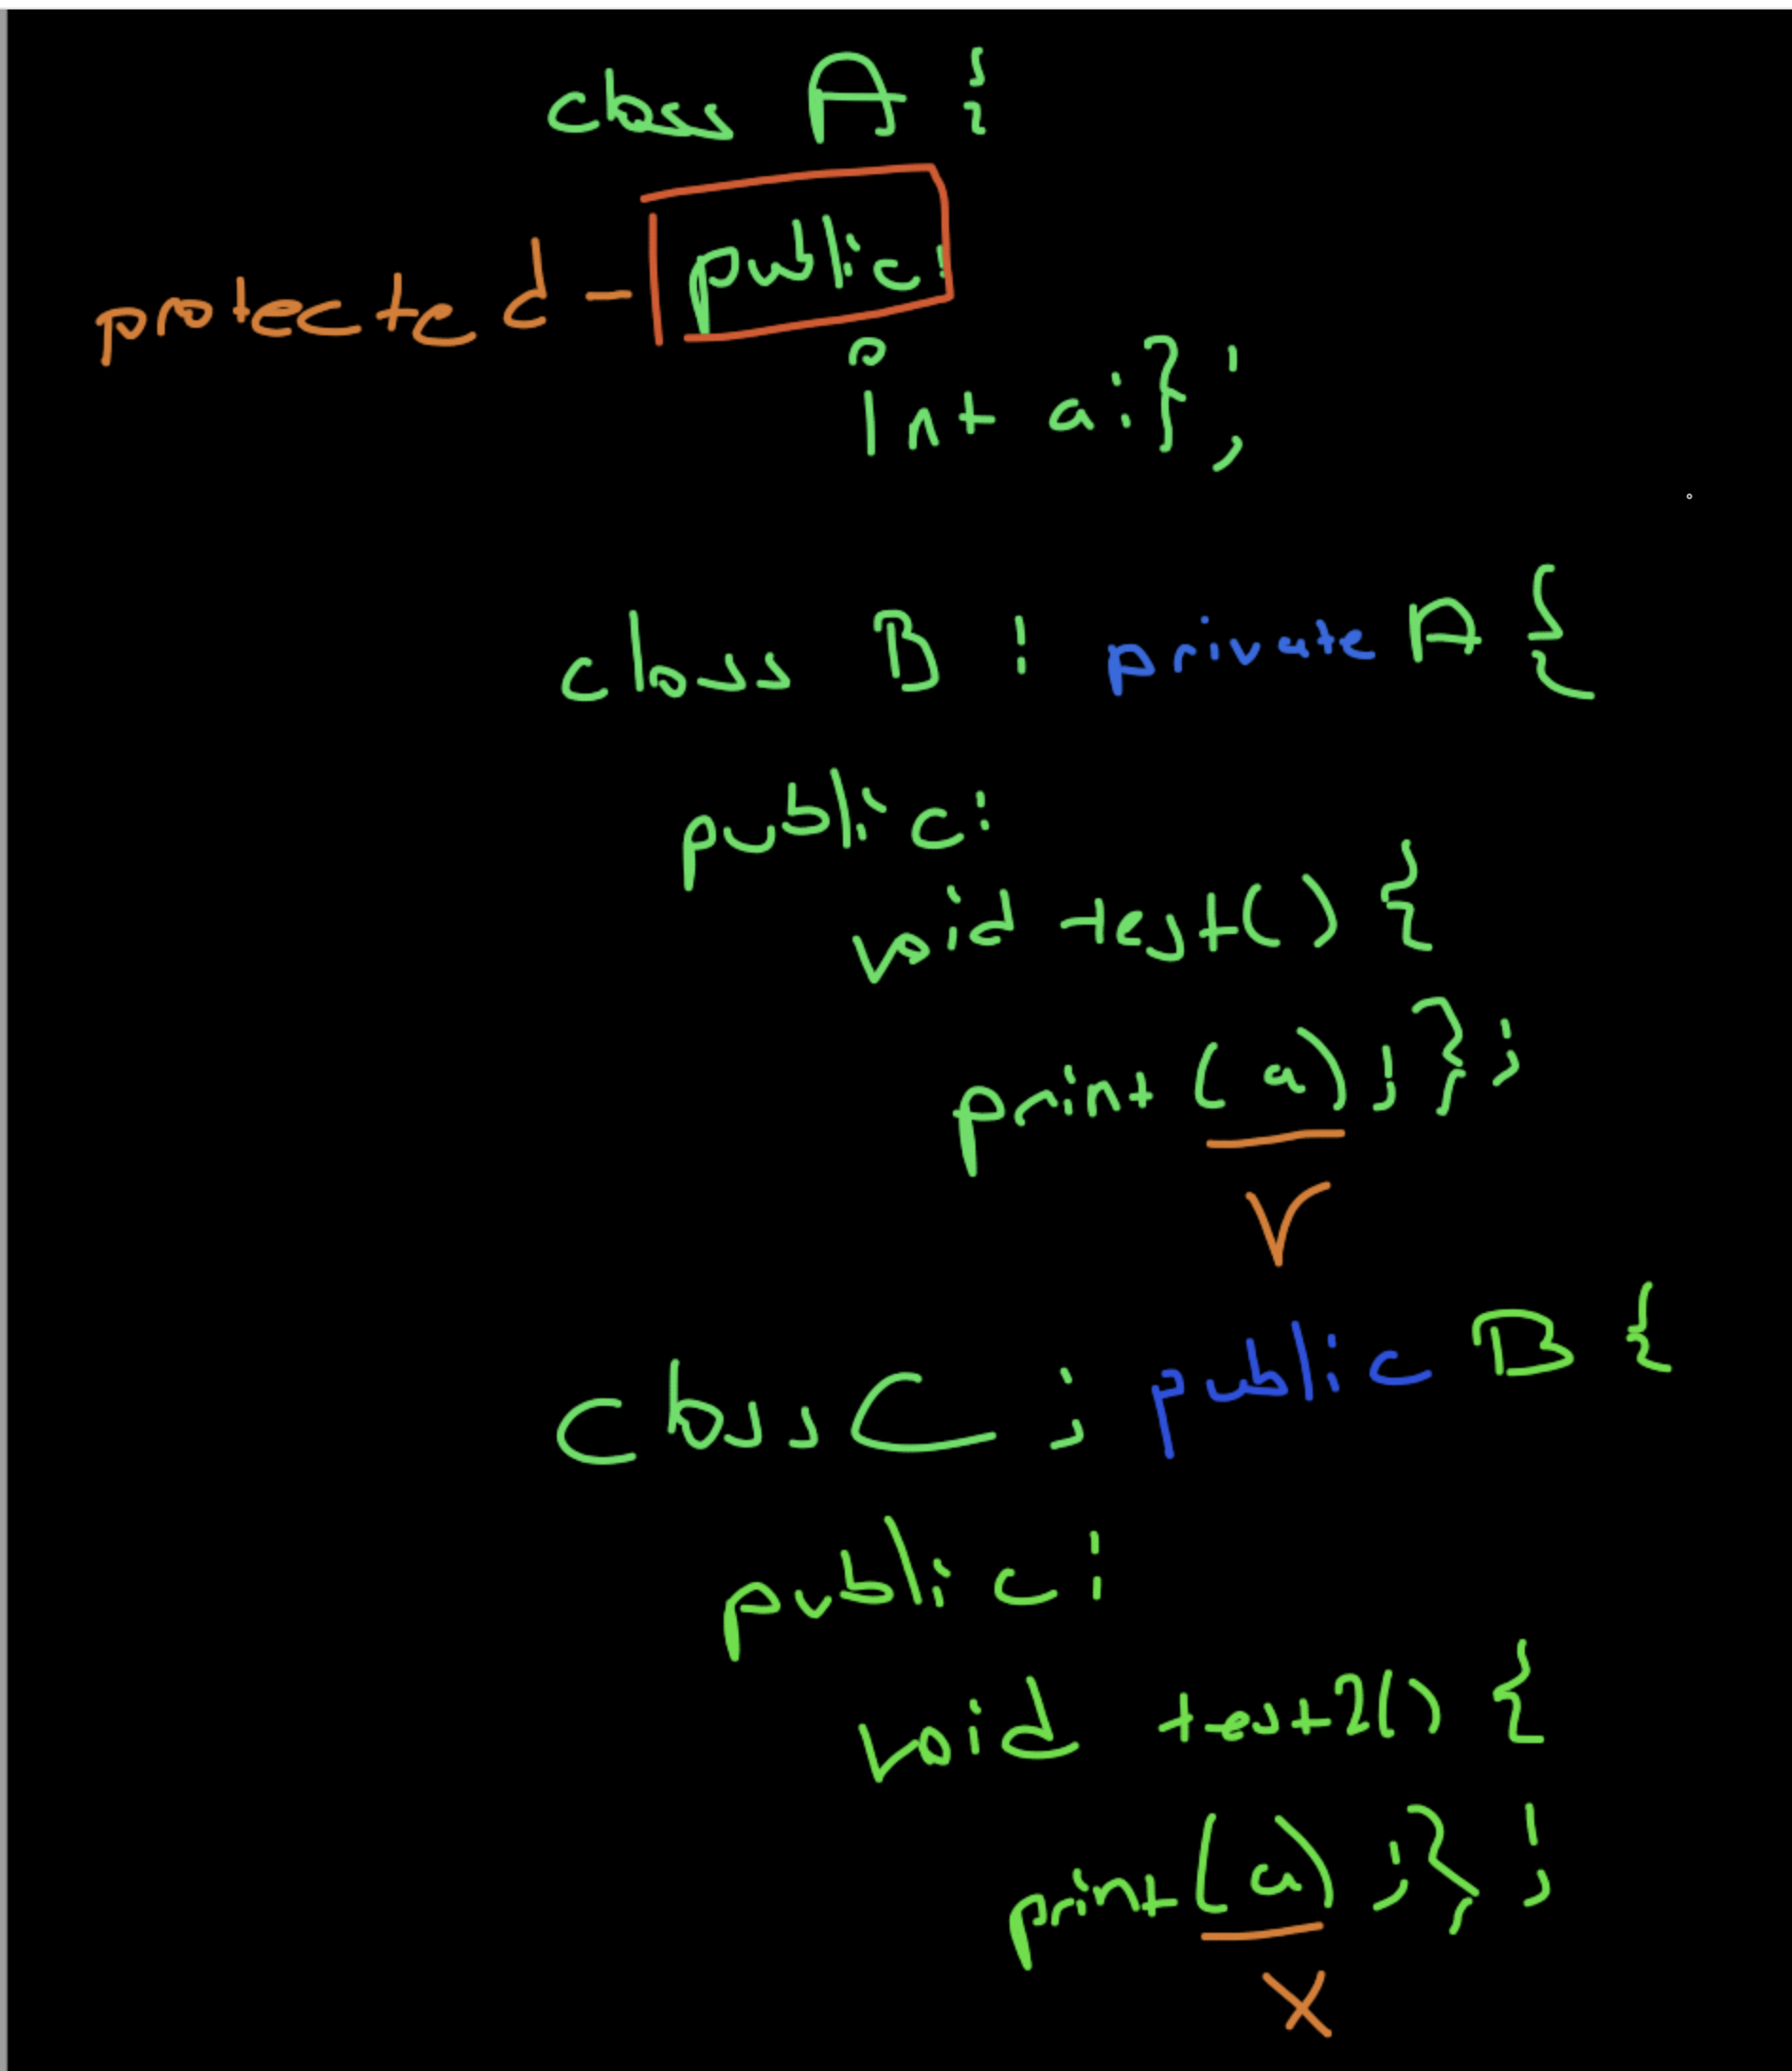 class A {
protected - public:
int a;};
class B : private A {
public:
void test() {
print (a);};
V
class C : public B {
public:
void test2() {
print (a);};
X